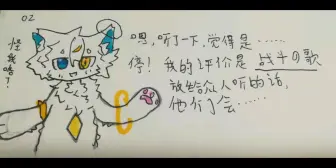 02
怪我咯?
嗯,听了一下,觉得是……
停!我的评价是 战斗の歌
放给众人听的话,
他们会……